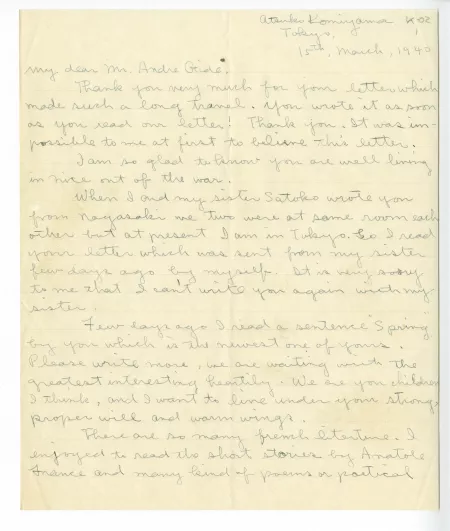 Atsuko Komiyama K 02
Tokyo, 1
15th, March, 1940
My dear Mr. Andre Gide.
Thank you very much for your letter which
made such a long travel. You wrote it as soon
as you read our letter! Thank you. It was im-
possible to me at first to believe this letter.
I am so glad to know you are well living
in Nice out of the war.
When I and my sister Satoko wrote you
from Nagasaki we two were at same room each
other but at present I am in Tokyo. So I read
your letter which was sent from my sister
few days ago by myself. It is very sorry
to me that I can't write you again with my
sister.
Few days ago I read a sentence "Spring"
by you which is the newest one of yours.
Please write more, we are waiting with the
greatest interesting heartily. We are your children
I think, and I want to live under your strong,
proper will and warm wings.
There are so many french literture. I
enjoyed to read the short stories by Anatole
France and many kind of poems or poetical